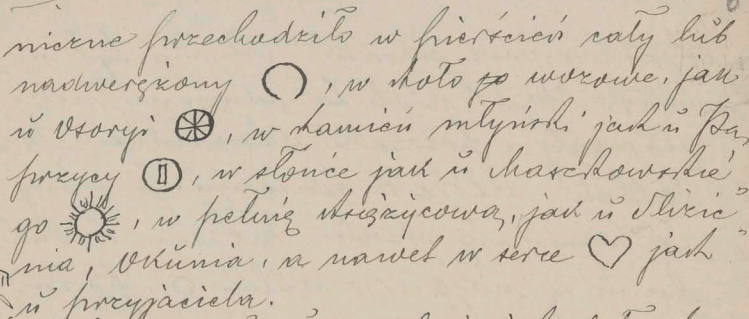 niczne przechodziło w pierścień cały lub
nadwerężony , w koło wozowe, jak
u Osoryi , w kamień młyński jak u Pa„
przycy , w słońce jak u Maszkowskie„
go , w pełnię księżycową, jak u
nia, Okunia, a nawet w serce jak
u przyjaciela.